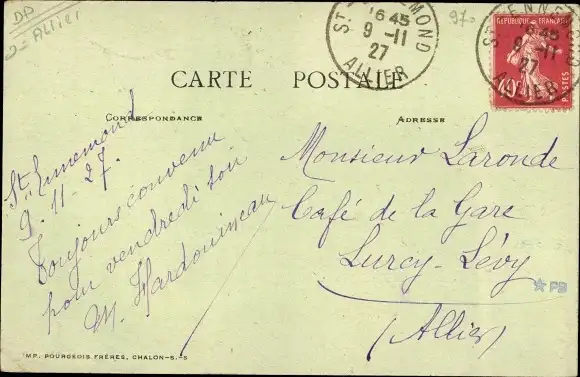 DP
Allier
970
ST ENNEMOND
16 45
9 -11
27
ALLIER
REPUBLIQUE FRANÇAISE
POSTES
ST ENNEMOND
16 45
9 -11
27
ALLIER
CARTE POSTALE
CORRESPONDANCE
ADRESSE
St Ennemond
9-11-27.
Toujours convenu
pour vendredi soir
M. Hardouineau
Monsieur Laronde
Café de la Gare
Lurcy-Lévy
(Allier)
PB
IMP. BOURGEOIS FRÈRES, CHALON-S.-S